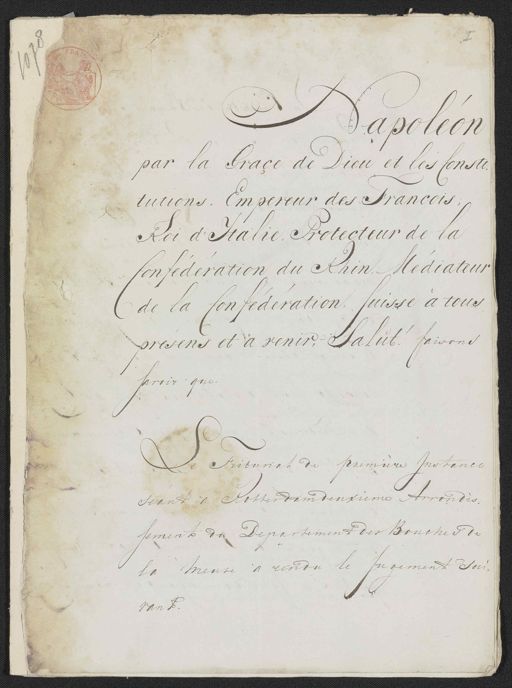 1078
I
Napoléon
par la Graçe de Dieu et les Consti,
tutions. Empereur des François,
Roi d'Italie. Protecteur de la
Confédération du Rhin. Médiateur
de la Confédération. Suisse à tous
présens et à venir, Salut! faisons
savoir que.
Le Tribunal de première Instance
séant à Rotterdam deuxieme Arrondis,
sement du Departement des Bouches de
la Meuse a rendu le Jugement Sui,
vant.